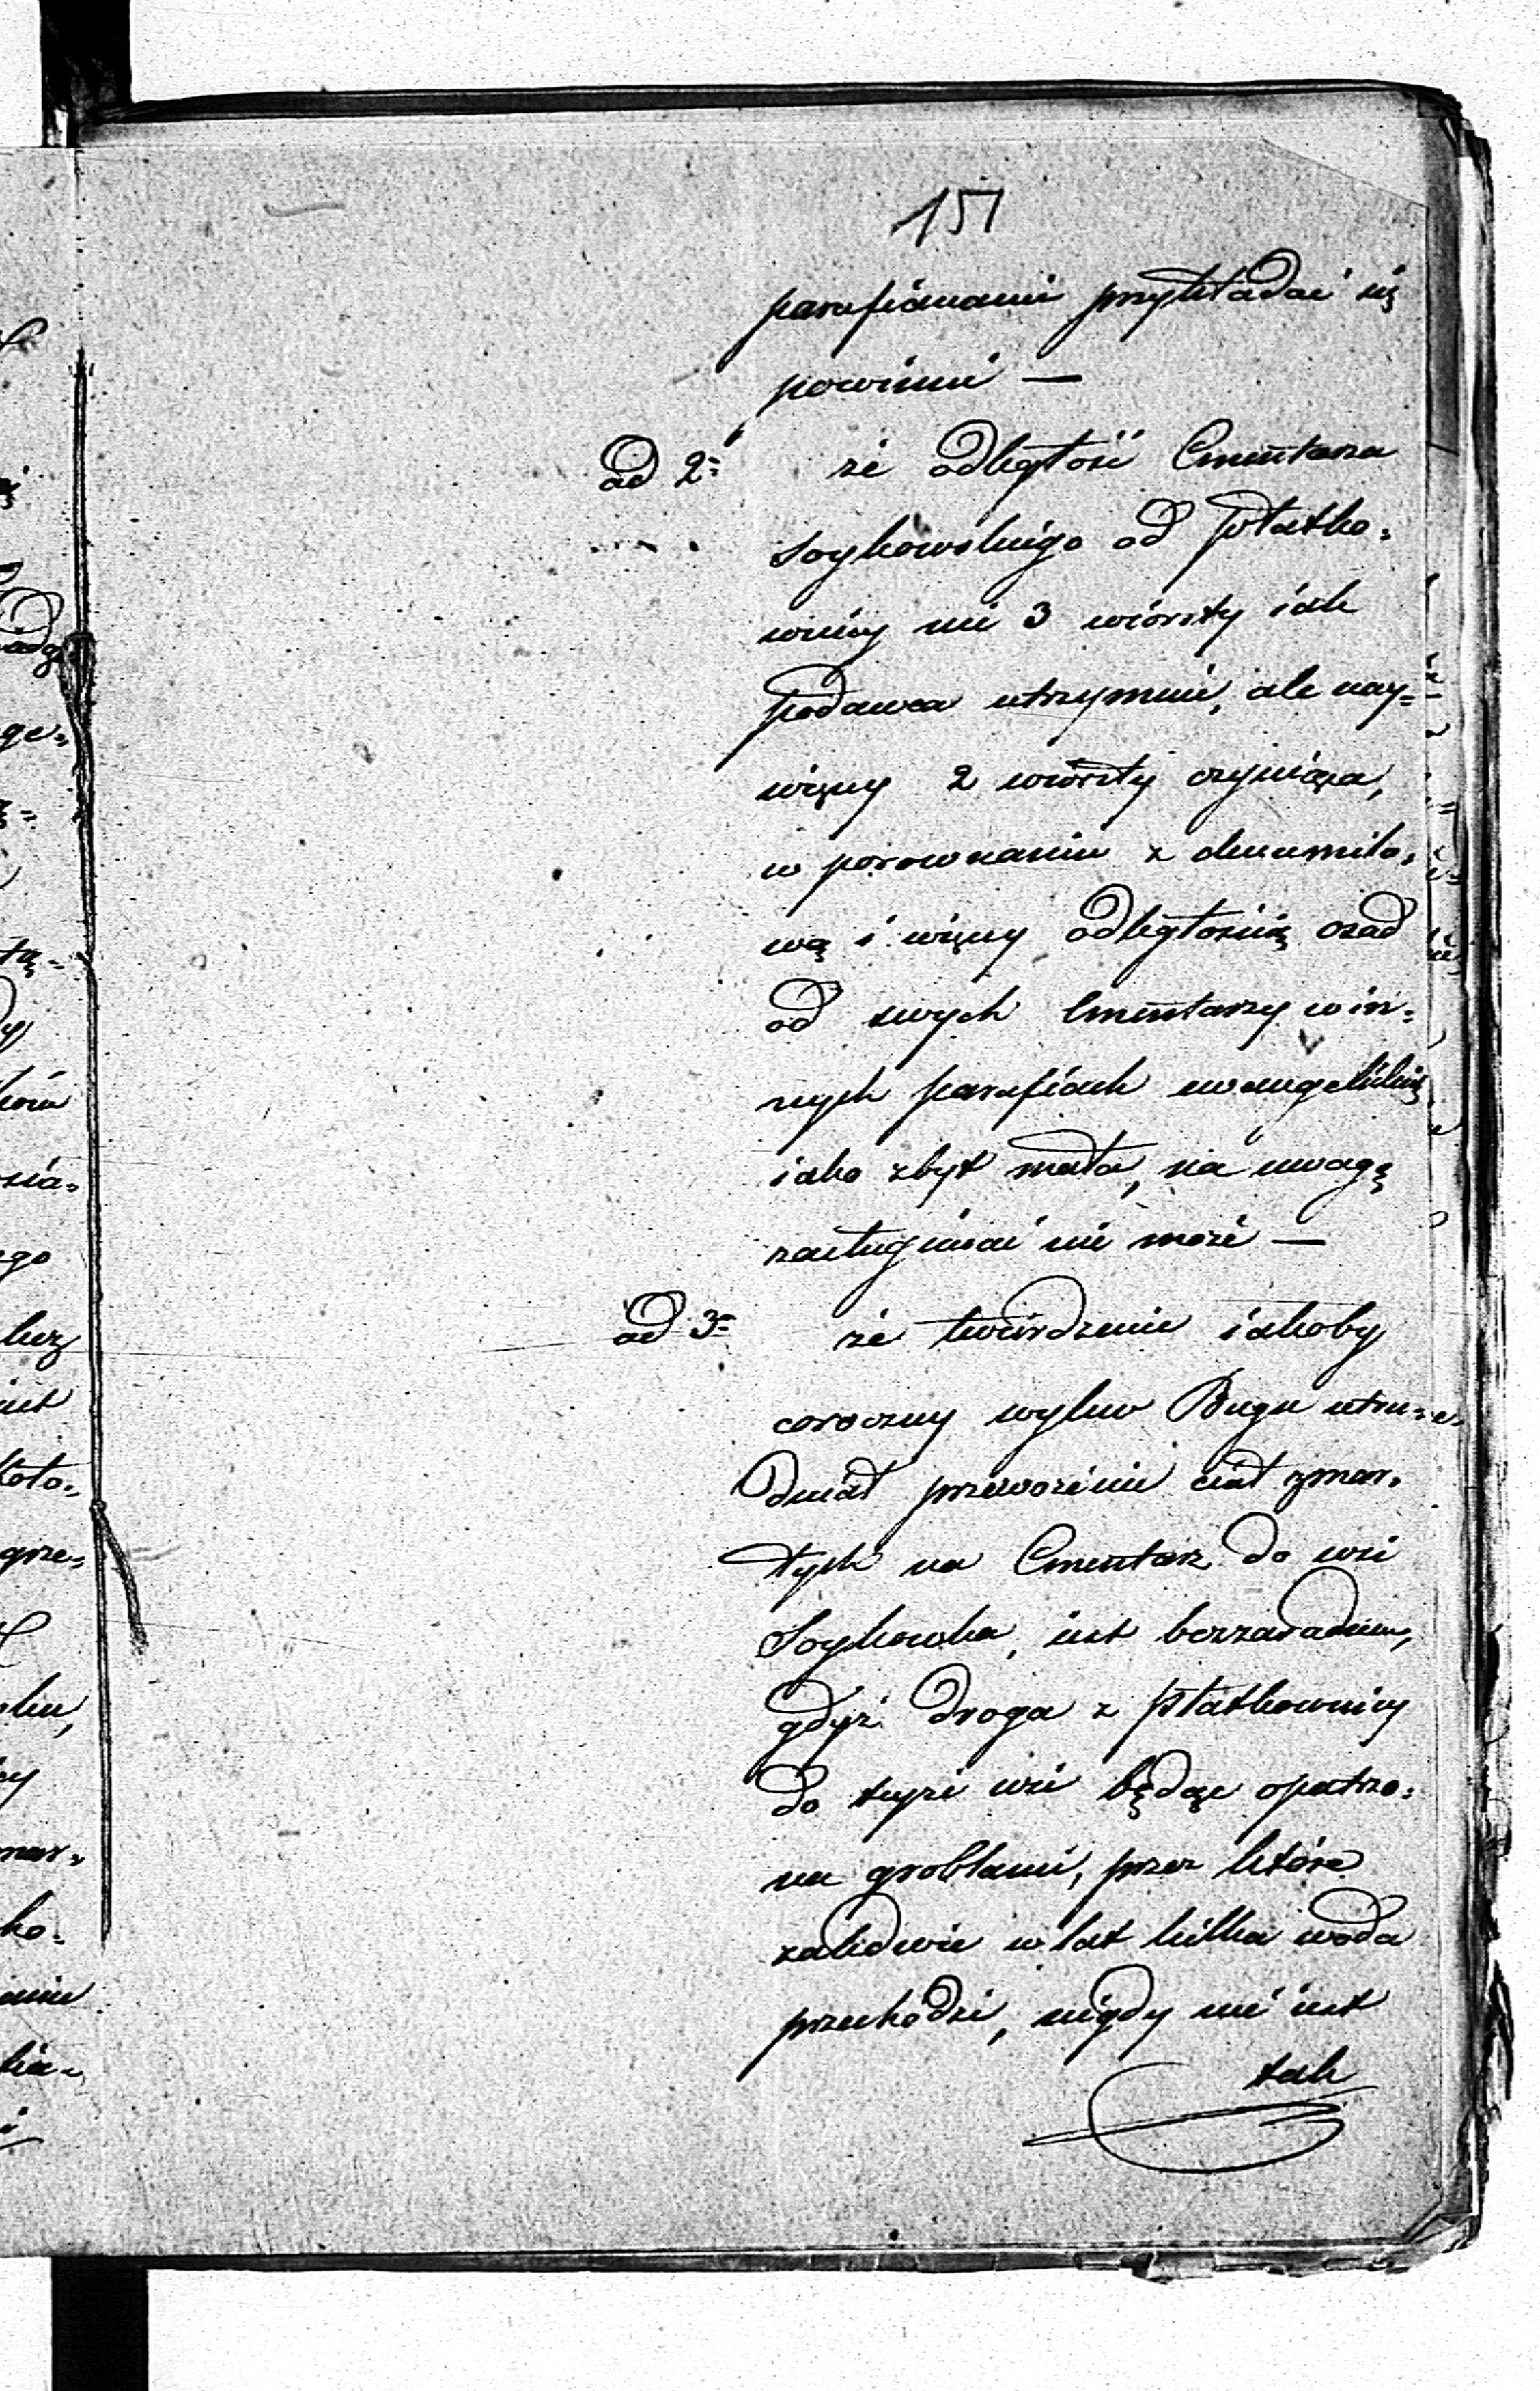 151
parafianami przykładać się
powinni —
ad 2= że odległość Cmentarza
Soykowskiego od Płatko=
wnicy nie 3 wiorsty iak
Podawca utrzymuie, ale nay=
więcey 2 wiorsty czyniąca,
w porownaniu z dwumilo=
wą i więcey odległością osad
od swych Cmentarzy w in=
nych parafiach ewangelickich
iako zbyt mała, na uwagę
zasługiwać nie może —
ad 3= że twierdzenie iakoby
coroczny wylew Bugu utru=
dniał przewożenie ciał zmar=
łych na Cmentarz do wsi
Soykowka, iest bezzasadnem,
gdyż droga z Płatkownicy
do teyże wsi będąc opatrzo=
na groblami, przez które
zaledwie w lat kilka woda
przechodzi, nigdy nie iest
tak